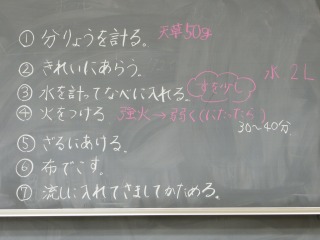 ①分りょうを計る。 天草50g
②きれいにあらう。
③水を計ってなべに入れる。 すを少し 水 2L
④火をつける 強火→弱く(にたったら)
30〜40分
⑤ざるにあける。
⑥布でこす。
⑦流しに入れてさましてかためる。